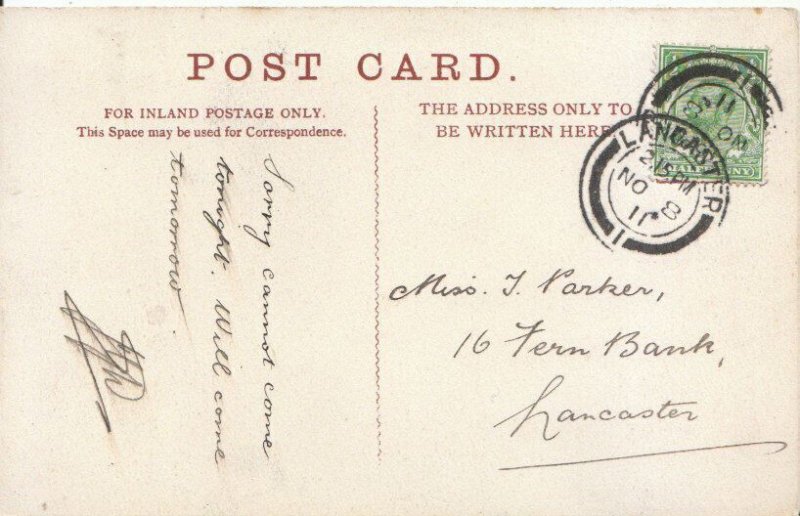 POST CARD.
FOR INLAND POSTAGE ONLY.
This Space may be used for Correspondence.
THE ADDRESS ONLY TO
BE WRITTEN HERE
Sorry cannot come
tonight. Will come
tomorrow.
LANCASTER
2.15 PM
NO 8
11
1
Miss. J. Parker,
16 Fern Bank,
Lancaster